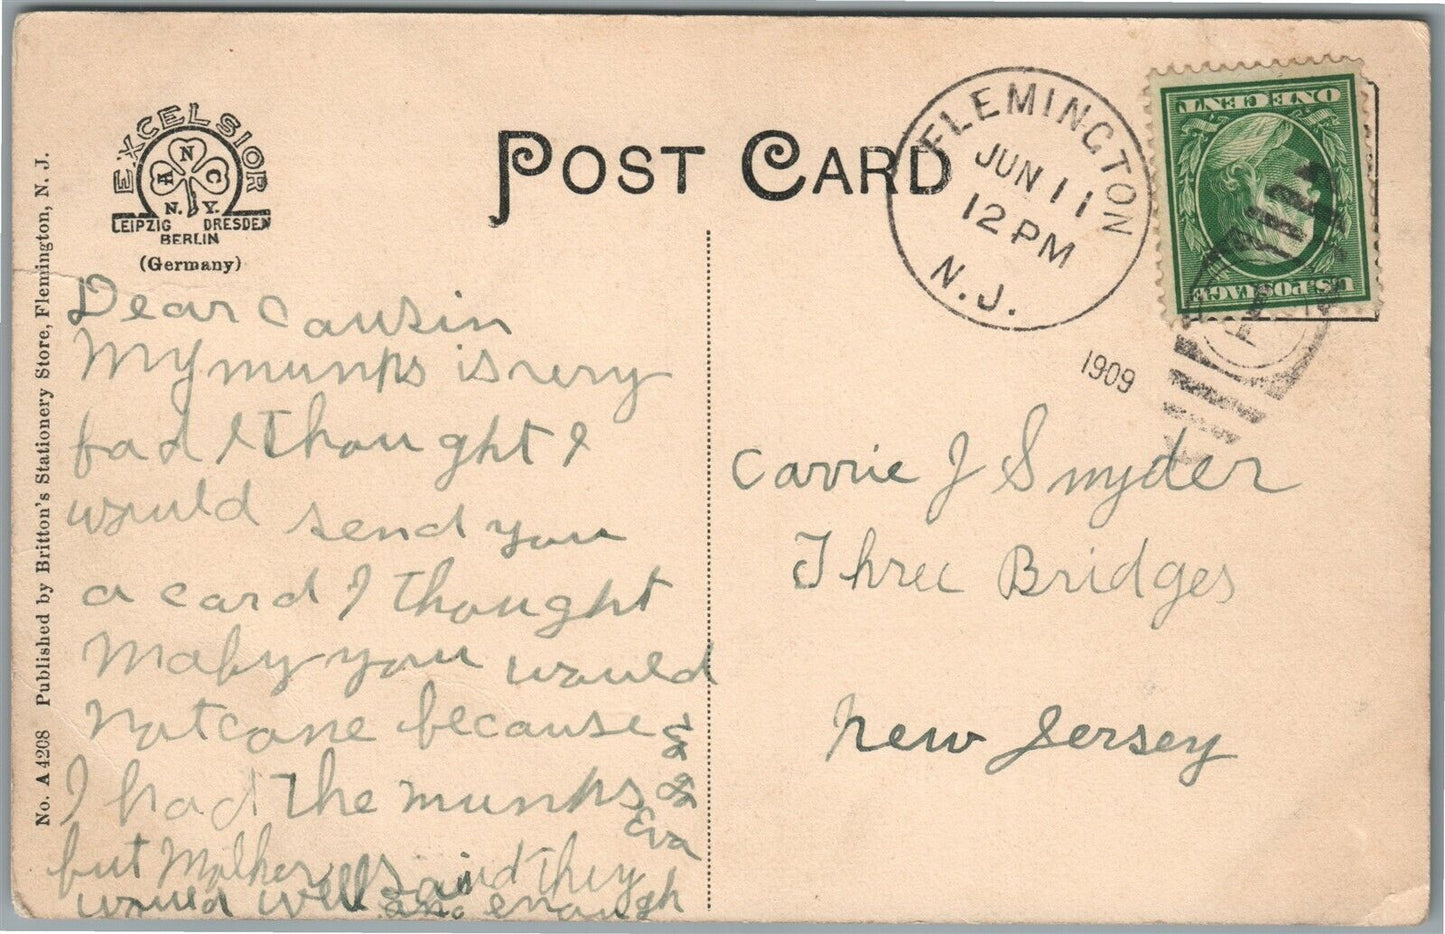 POST CARD
EXCELSIOR
A N C
N. Y.
LEIPZIG DRESDEN
BERLIN
(Germany)
No. A 4208 Published by Britton's Stationery Store, Flemington, N. J.
FLEMINGTON
JUN 11
12 PM
N.J.
1909
ONE CENT
U.S. POSTAGE
Dear Cousin
My mumps is very
bad I thought I
would send you
a card I thought
Maby you would
not came because
I had the mumps
but Mother said they
would well enough
Eva
Carrie J Snyder
Three Bridges
New Jersey